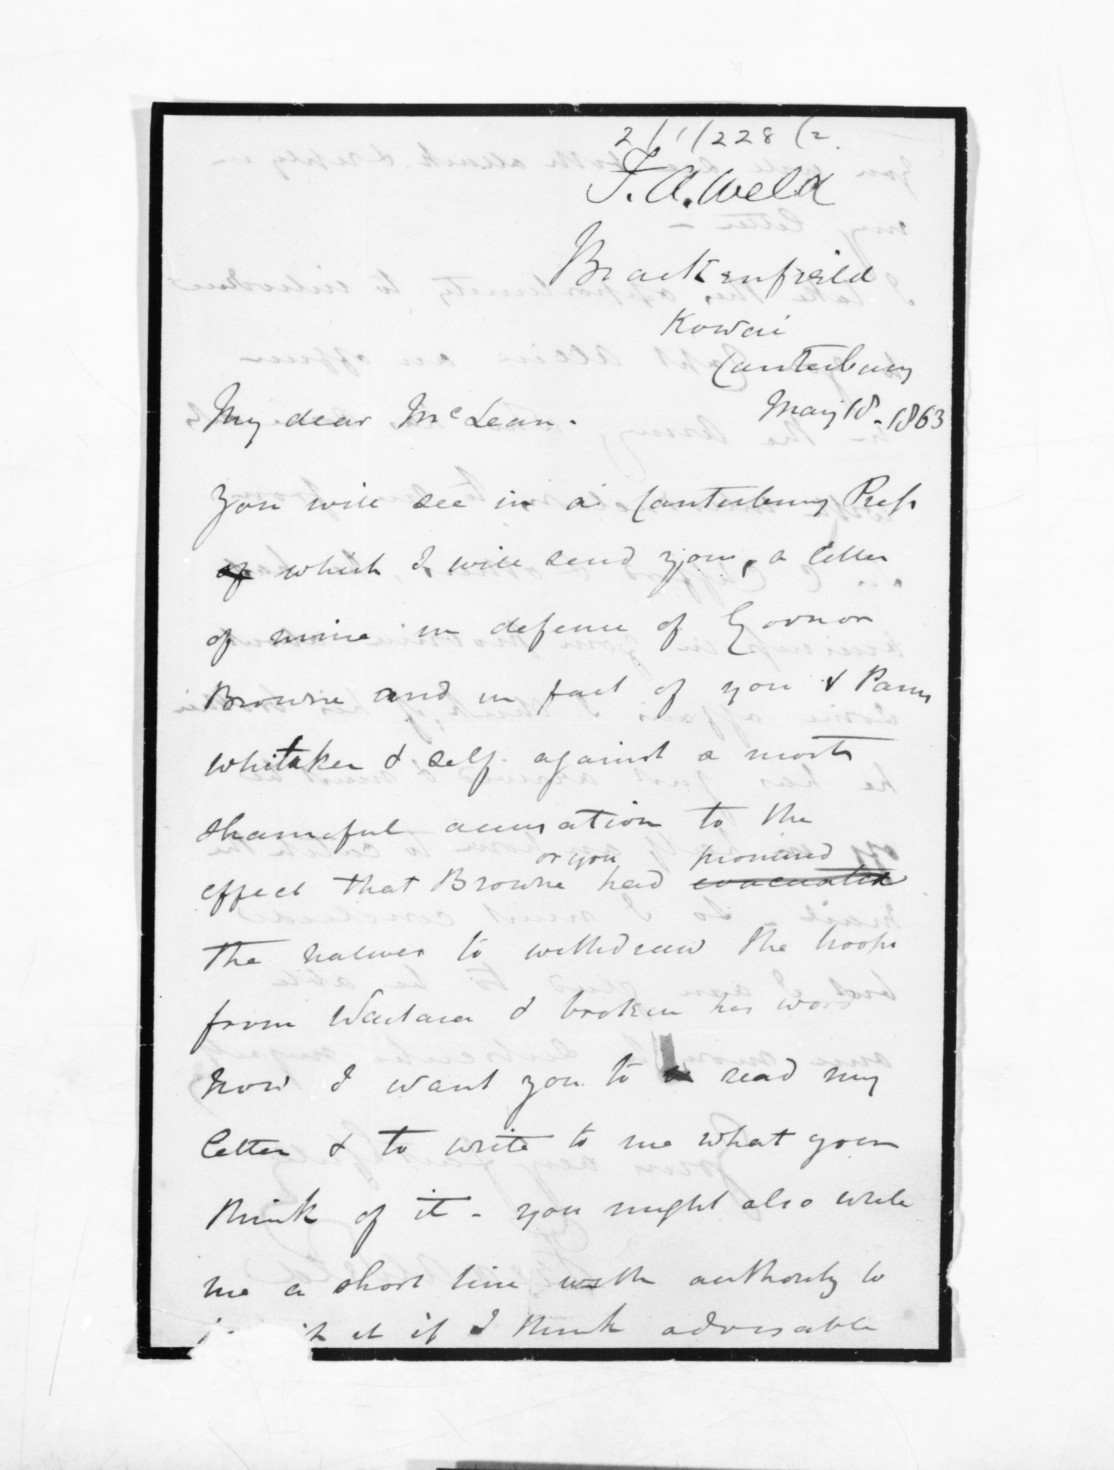 2/1/228 (2.
F. A. Weld
Brackenfield
Kowai
Canterbury
May 18. 1863
My dear McLean.
You will see in a Canterbury Press
of which I will send you, a letter
of mine in defence of Govnor
Browne and in fact of you & Parris
Whitaker & self against a most
shameful accusation to the
or you promised
effect that Browne had evacuated
the natives to withdraw the troops
from Waitara & broken his word
Now I want you to read my
letter & to write to me what you
think of it - you might also write
me a short line with authority to
it if I think advisable